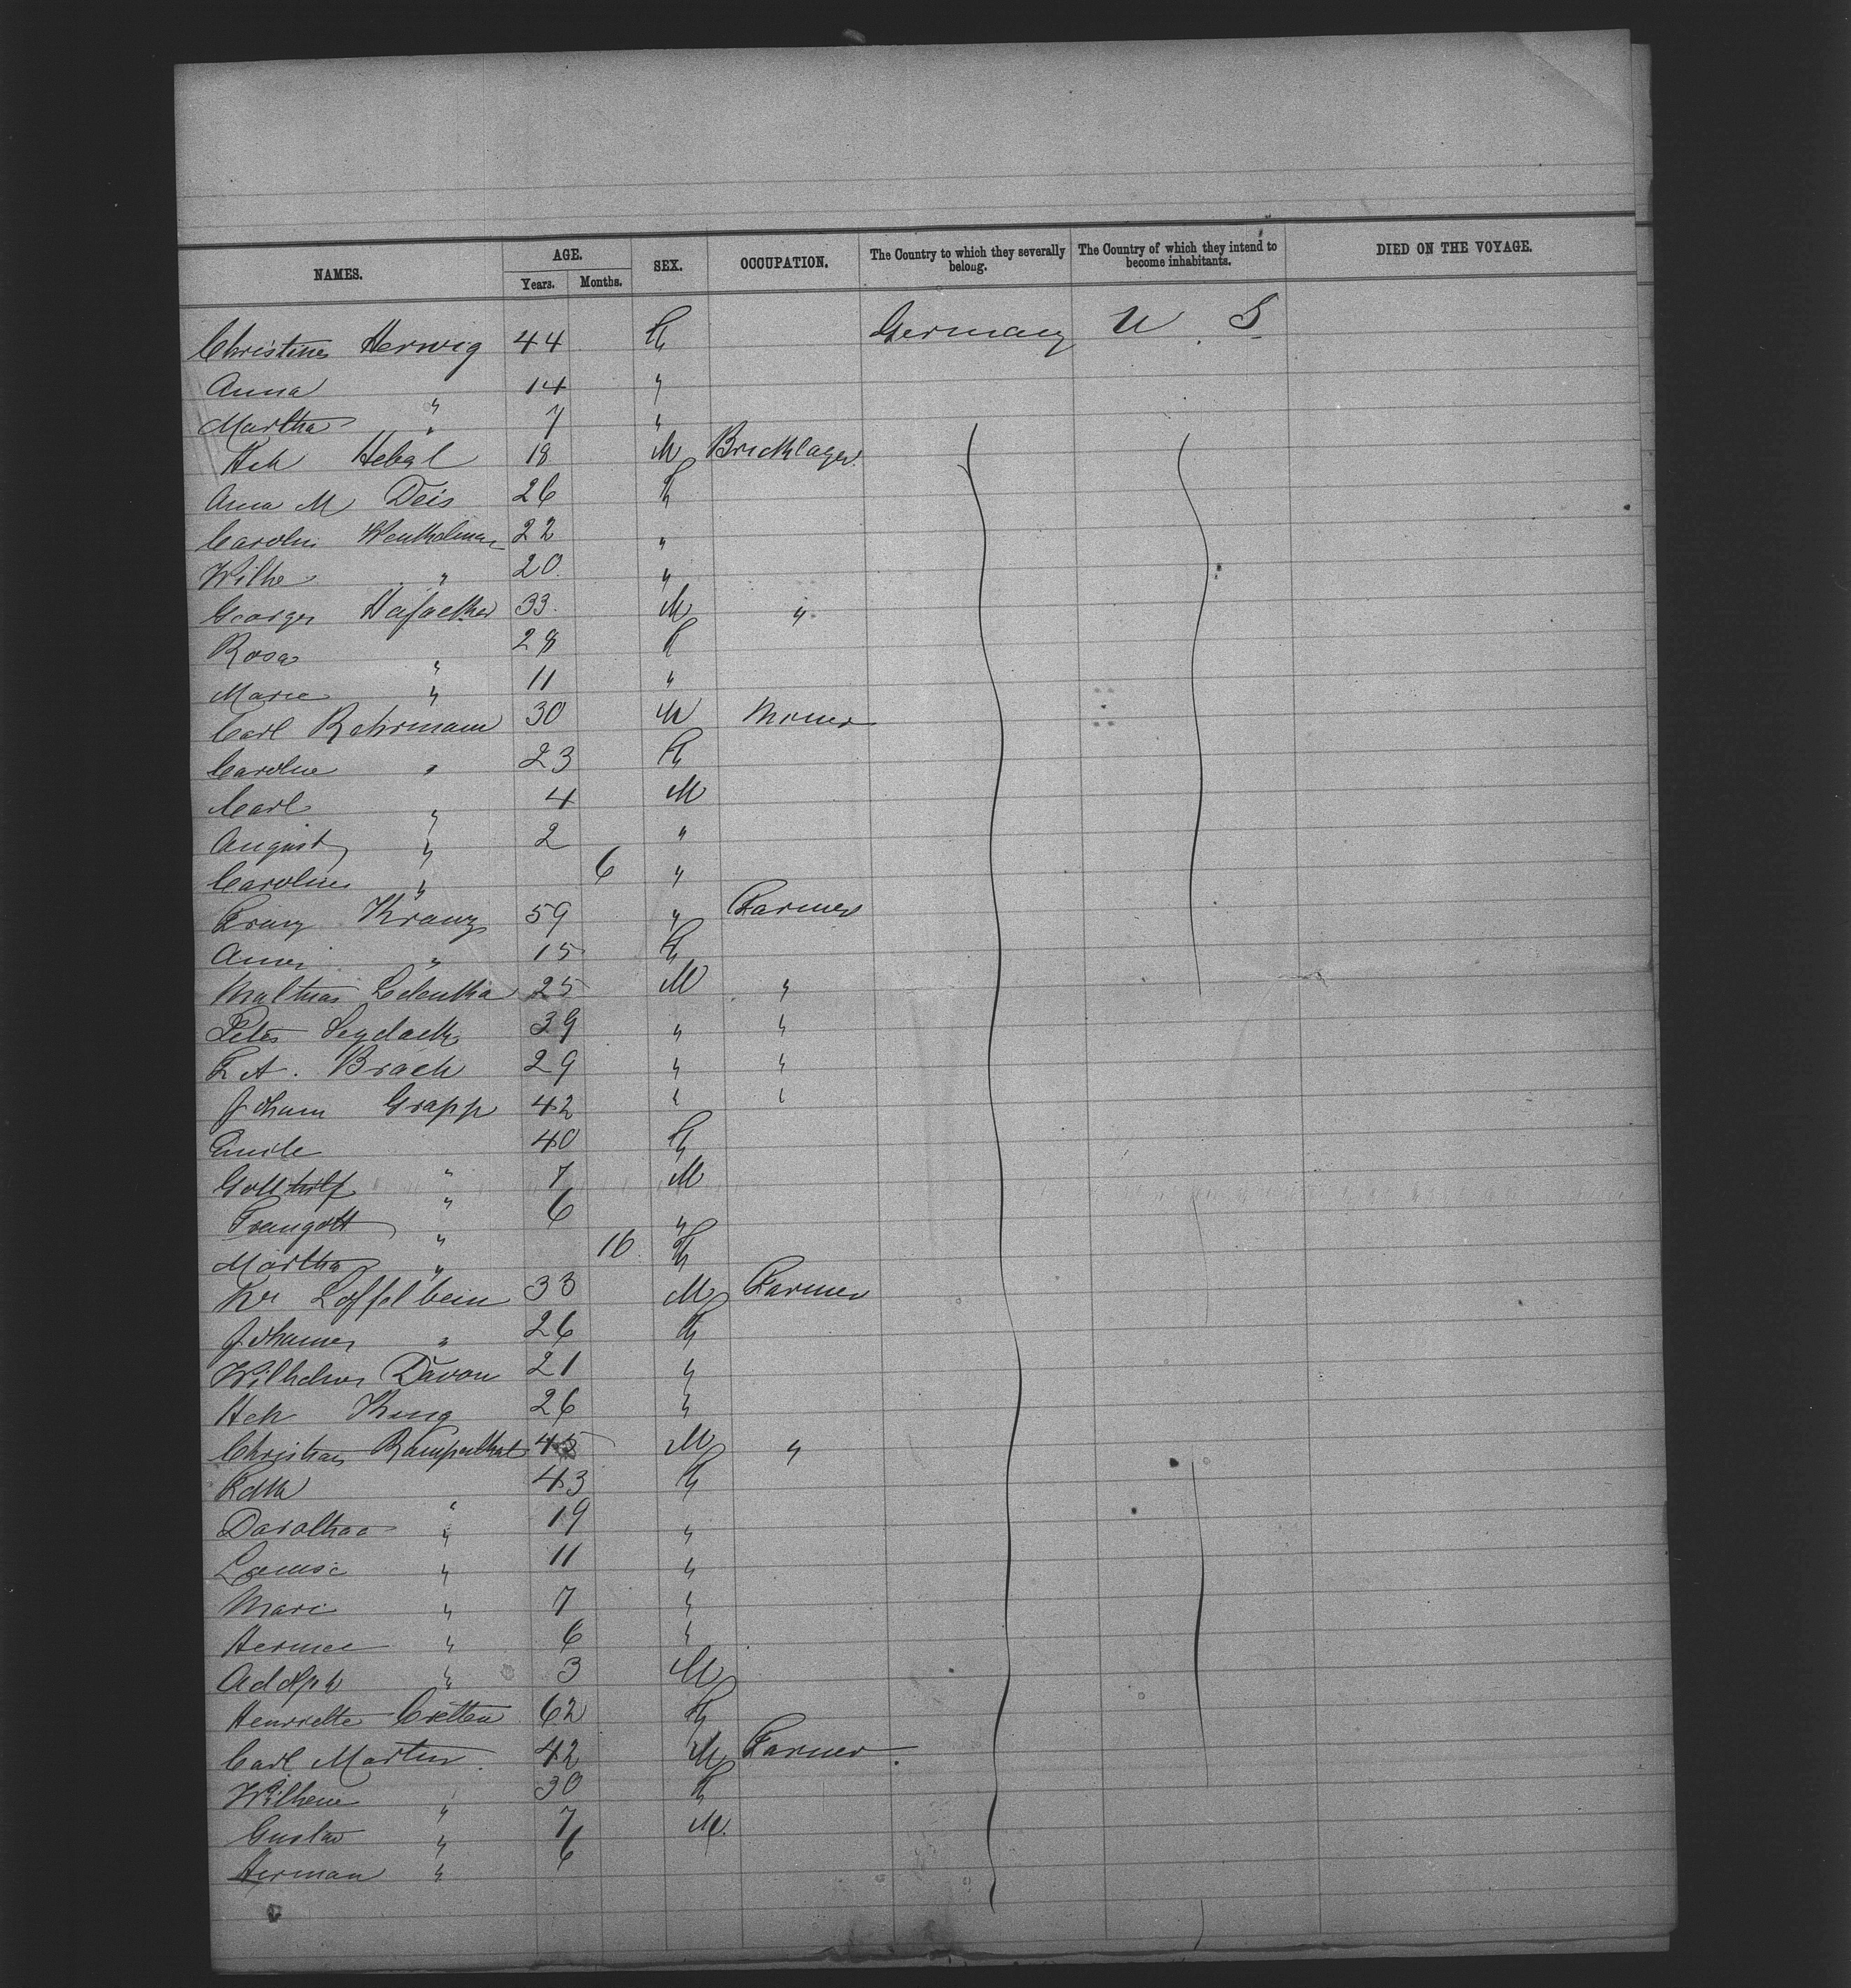 NAMES. AGE. SEX. OCCUPATION. The Country to which they severally belong. The Country of which they intend to become inhabitants. DIED ON THE VOYAGE.
Years. Months.
Christine Herwig 44 F Germany U. S.
Anna " 14 "
Martha " 7 "
Hch Hebal 18 M Bricklayer
Anna M Deis 26 F
Carolin 22 "
Wilhe " 20 "
George 33 M "
Rosa " 28 F
Marie " 11 "
Carl Rehrmann 30 M Miner
Caroline " 23 F
Carl " 4 M
August " 2 "
Caroline " 6 "
Franz Kranz 59 " Farmer
" 15 F
Mathias 25 M "
Peter Seydack 39 " "
F A. Brach 29 " "
Johann Grapp 42 " "
Emile " 40 F
Gotthilf " 7 M
Traugott " 6 "
Martha " 10 F
Kr Loffelbein 33 M Farmer
Johanne " 26 F
Wilhelm Davon 21 "
Hch King 26 "
Christian 45 M "
Kath " 43 F
Darathea " 19 "
Louise " 11 "
Mari " 7 "
Hermee " 6 "
Adolph " 3 M
Henriette 62 F
Carl Martin 42 M Farmer
Wilheme " 30 F
Gustav " 7 M.
Herman " 6